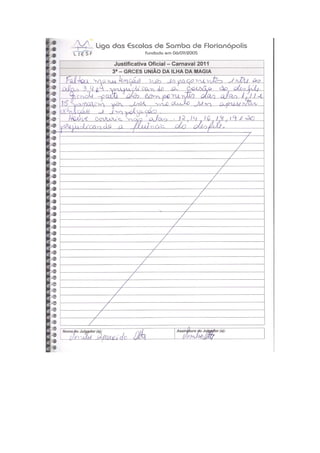 Liga das Escolas de Samba de Florianópolis
LIESF fundada em 06/09/2005
Justificativa Oficial – Carnaval 2011
3ª – GRCES UNIÃO DA ILHA DA MAGIA
Faltou manutenção nos espaçamentos entre as
alas 3, 4 prejudicando a do desfile.
Grande parte dos componentes das alas 1, 11 e
15 passaram por este módulo sem apresentar
e empolgação.
Houve nas alas 12, 14, 16, 18, 19 e 20
prejudicando a fluência do desfile.
Nome do Julgador (a): Assinatura do Julgador (a):
Aparecido